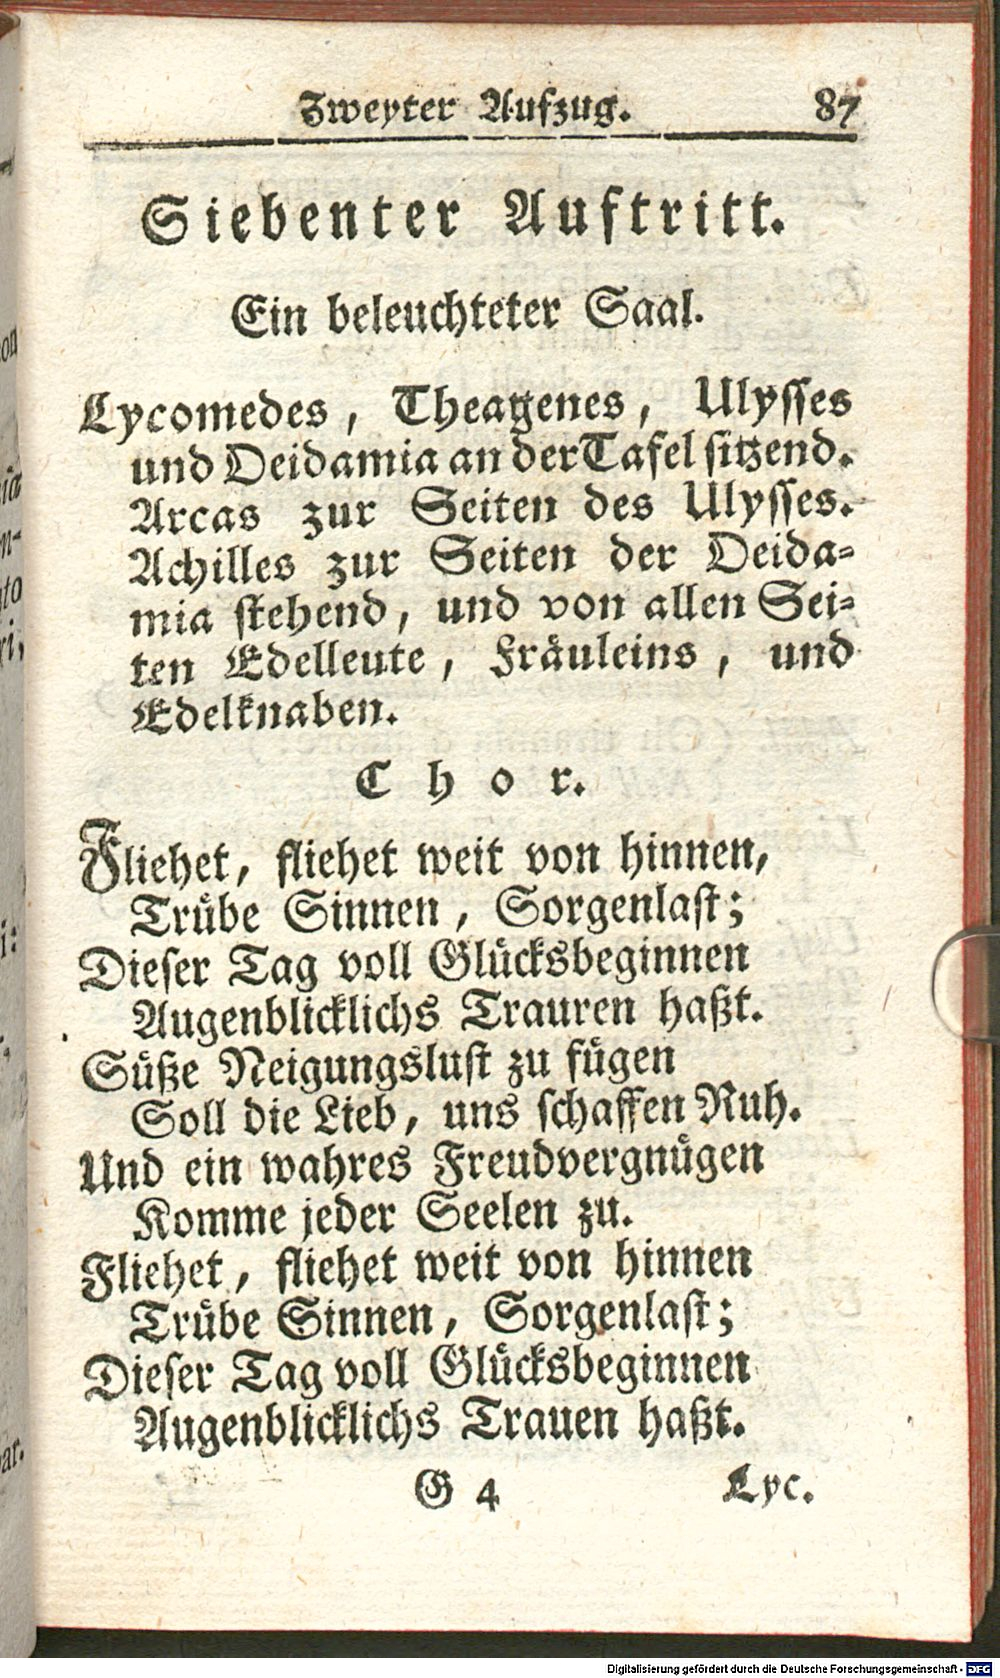 Zweyter Aufzug. 87
Siebenter Auftritt.
Ein beleuchteter Saal.
Lycomedes, Theagenes, Ulysses
und Deidamia an der Tafel sitzend.
Arcas zur Seiten des Ulysses.
Achilles zur Seiten der Deida-
mia stehend, und von allen Sei-
ten Edelleute, Fräuleins, und
Edelknaben.
Chor.
Fliehet, fliehet weit von hinnen,
Trübe Sinnen, Sorgenlast;
Dieser Tag voll Glücksbeginnen
Augenblicklichs Trauren haßt.
Süße Neigungslust zu fügen
Soll die Lieb, uns schaffen Ruh.
Und ein wahres Freudvergnügen
Komme jeder Seelen zu.
Fliehet, fliehet weit von hinnen
Trübe Sinnen, Sorgenlast;
Dieser Tag voll Glücksbeginnen
Augenblicklichs Trauen haßt.
G 4 Lyc.
Digitalisierung gefördert durch die Deutsche Forschungsgemeinschaft - DFG